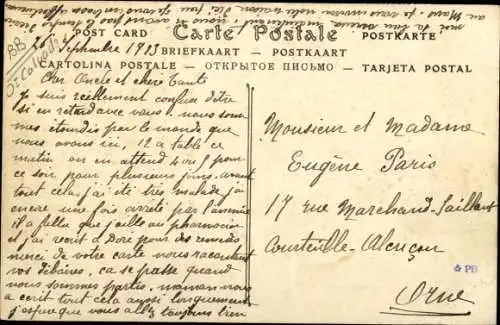 POST CARD Carte Postale POSTKARTE
BRIEFKAART — POSTKAART
CARTOLINA POSTALE — ОТКРЫТОЕ ПИСЬМО — TARJETA POSTAL
26 Septembre 1913
Cher Oncle et chère Tante
Je suis réellement confuse d'être
si en retard avec vous. nous som
mes étourdis par le monde que
nous avons ici, 12 a table ce
matin on en attend 4 ou 5 pour
ce soir pour plusieurs jours, avant
tout cela j'ai été très malade j'ai
encore une fois arrêté par l'anémie
il a fallu que j'aille au pharmacien
et j'ai écrit à Doré pour des remèdes
merci de votre carte nous racontant
vos déboires, ca se passe quand
nous sommes partis, maman vous
a ecrit tout cela aussi longuement
j'espère que vous allez toujours bien
Monsieur et Madame
Eugène Paris
17 rue Marchand-Saillant
Courteille-Alençon
Orne
PD